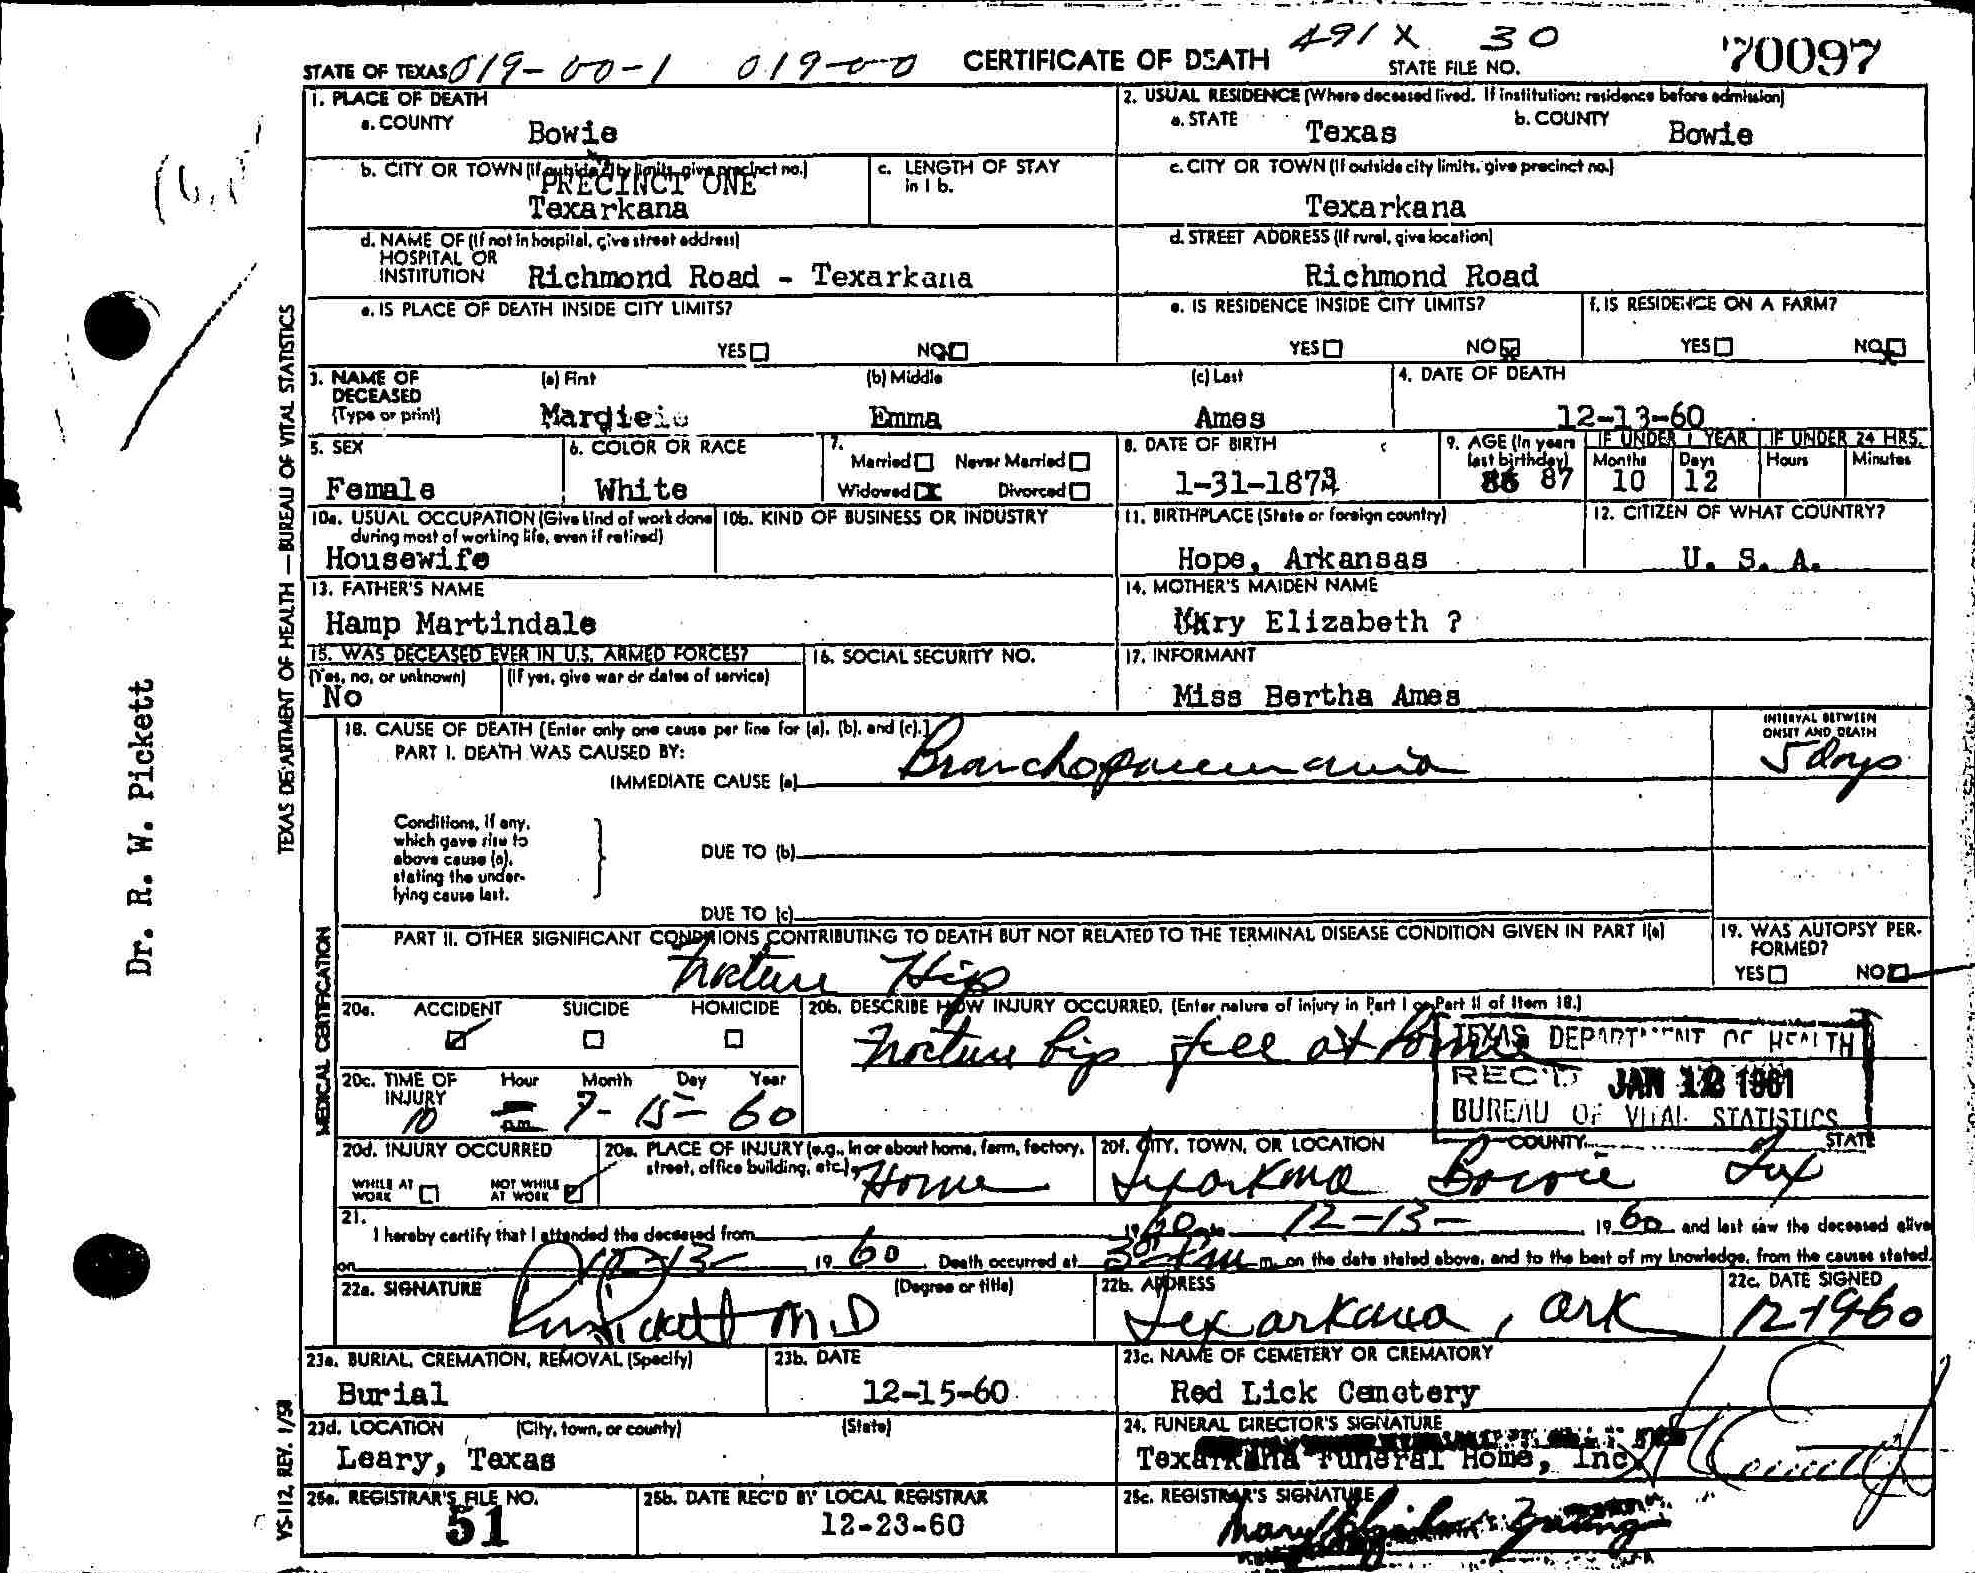 491 X 30
STATE OF TEXAS 019-00-1 019-00 CERTIFICATE OF DEATH STATE FILE NO. 70097
1. PLACE OF DEATH
a. COUNTY Bowie
2. USUAL RESIDENCE (Where deceased lived. If institution: residence before admission)
a. STATE Texas b. COUNTY Bowie
b. CITY OR TOWN (If outside city limits, give precinct no.)
PRECINCT ONE
Texarkana
c. LENGTH OF STAY
in 1 b.
c. CITY OR TOWN (If outside city limits, give precinct no.)
Texarkana
d. NAME OF (If not in hospital, give street address)
HOSPITAL OR
INSTITUTION Richmond Road - Texarkana
d. STREET ADDRESS (If rural, give location)
Richmond Road
e. IS PLACE OF DEATH INSIDE CITY LIMITS?
YES NO
e. IS RESIDENCE INSIDE CITY LIMITS?
YES NO
f. IS RESIDENCE ON A FARM?
YES NO
3. NAME OF
DECEASED
(Type or print)
(a) First (b) Middle Emma
(c) Last Ames
4. DATE OF DEATH
12-13-60
5. SEX
Female
6. COLOR OR RACE
White
7.
Married Never Married
Widowed Divorced
8. DATE OF BIRTH
1-31-1873
9. AGE (In years
last birthday)
86 87
IF UNDER 1 YEAR
Months Days
10 12
IF UNDER 24 HRS.
Hours Minutes
10a. USUAL OCCUPATION (Give kind of work done
during most of working life, even if retired)
Housewife
10b. KIND OF BUSINESS OR INDUSTRY
11. BIRTHPLACE (State or foreign country)
Hope, Arkansas
12. CITIZEN OF WHAT COUNTRY?
U. S. A.
13. FATHER'S NAME
Hamp Martindale
14. MOTHER'S MAIDEN NAME
Mary Elizabeth ?
15. WAS DECEASED EVER IN U.S. ARMED FORCES?
(Yes, no, or unknown) (If yes, give war or dates of service)
No
16. SOCIAL SECURITY NO.
17. INFORMANT
Miss Bertha Ames
18. CAUSE OF DEATH [Enter only one cause per line for (a), (b), and (c).]
PART I. DEATH WAS CAUSED BY:
IMMEDIATE CAUSE (a) Bronchopneumonia
INTERVAL BETWEEN
ONSET AND DEATH
5 days
Conditions, if any,
which gave rise to
above cause (a),
stating the under-
lying cause last.
DUE TO (b)
DUE TO (c)
PART II. OTHER SIGNIFICANT CONDITIONS CONTRIBUTING TO DEATH BUT NOT RELATED TO THE TERMINAL DISEASE CONDITION GIVEN IN PART I(a)
Fracture Hip
19. WAS AUTOPSY PER-
FORMED?
YES NO
20a. ACCIDENT SUICIDE HOMICIDE
20b. DESCRIBE HOW INJURY OCCURRED. (Enter nature of injury in Part I or Part II of Item 18.)
Fracture hip fell at home
TEXAS DEPARTMENT OF HEALTH
REC'D JAN 12 1961
BUREAU OF VITAL STATISTICS
20c. TIME OF
INJURY
Hour Month Day Year
10 p.m. 7-15-60
20d. INJURY OCCURRED
WHILE AT
WORK
NOT WHILE
AT WORK
20e. PLACE OF INJURY (e.g., in or about home, farm, factory,
street, office building, etc.)
Home
20f. CITY, TOWN, OR LOCATION COUNTY STATE
Texarkana Bowie Tex
21.
I hereby certify that I attended the deceased from 1960 to 12-13- 1960 and last saw the deceased alive
on 12-13- 1960. Death occurred at m. on the date stated above, and to the best of my knowledge, from the causes stated.
22a. SIGNATURE (Degree or title)
RW Pickett M D
22b. ADDRESS
Texarkana, Ark
22c. DATE SIGNED
12-19-60
23a. BURIAL, CREMATION, REMOVAL (Specify)
Burial
23b. DATE
12-15-60
23c. NAME OF CEMETERY OR CREMATORY
Red Lick Cemetery
23d. LOCATION (City, town, or county) (State)
Leary, Texas
24. FUNERAL DIRECTOR'S SIGNATURE
Texarkana Funeral Home, Inc.
25a. REGISTRAR'S FILE NO.
51
25b. DATE REC'D BY LOCAL REGISTRAR
12-23-60
25c. REGISTRAR'S SIGNATURE
Mary
TEXAS DEPARTMENT OF HEALTH — BUREAU OF VITAL STATISTICS
MEDICAL CERTIFICATION
VS-112, REV. 1/58
Dr. R. W. Pickett